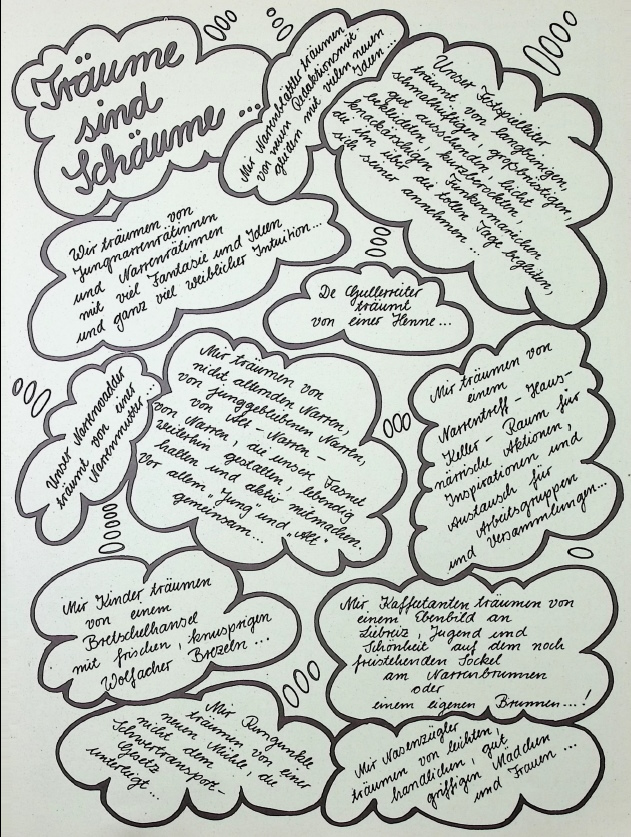 Träume
sind
Schäume ...
Mir Narrenblättler träumen
von neuen Redaktionsmit-
gliedern mit vielen neuen
Ideen ...
Unser Festspielleiter
träumt von langbeinigen,
schmalhüftigen, großbrüstigen,
gut aussehenden, leicht
bekleideten, kurzberockten,
knackärschigen Funkenmariechen
die ihn über die tollen Tage begleiten,
sich seiner annehmen ...
Wir träumen von
Jungnarrenrätinnen
und Narrenrätinnen
mit viel Fantasie und Ideen
und ganz viel weiblicher Intuition...
De Gullerreiter
träumt
von einer Henne ...
Unser Narrenvadder
träumt von einer
Narrenmutter ...
Mir träumen von
nicht alternden Narren,
von junggebliebenen Narren,
von Alt - Narren -
von Narren, die unsere Fasnet
weiterhin gestalten, lebendig
halten und aktiv mitmachen.
Vor allem "Jung" und "Alt"
gemeinsam...
Mir träumen von
einem
Narrentreff - Haus -
Keller - Raum für
närrische Aktionen,
Inspirationen und
Austausch für
Arbeitsgruppen
und Versammlungen...
Mir Kinder träumen
von einem
Bretschelhansel
mit frischen, knusprigen
Wolfacher Brezeln ...
Mir Kaffeetanten träumen von
einem Ebenbild an
Liebreiz, Jugend und
Schönheit auf dem noch
freistehenden Sockel
am Narrenbrunnen
oder
einem eigenen Brunnen...!
Mir Rungunkle
träumen von einer
neuen Mühle, die
nicht dem
Schwertransport-
Gesetz
unterliegt ...
Mir Nasenzügler
träumen von leichten,
handlichen, gut
griffigen Mädchen
und Frauen ...